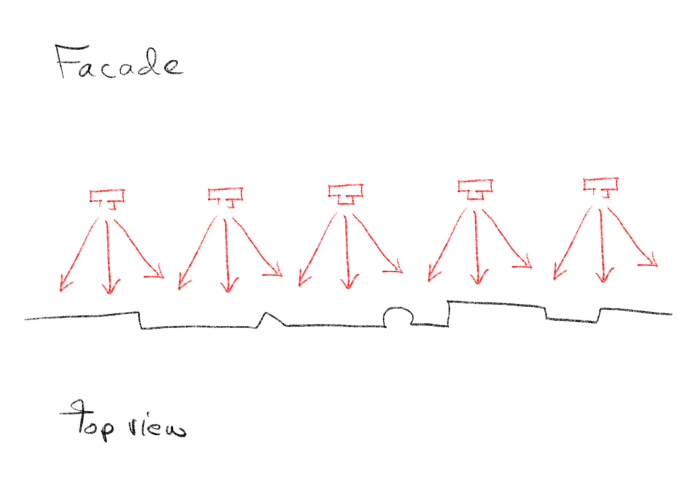 Facade
top view